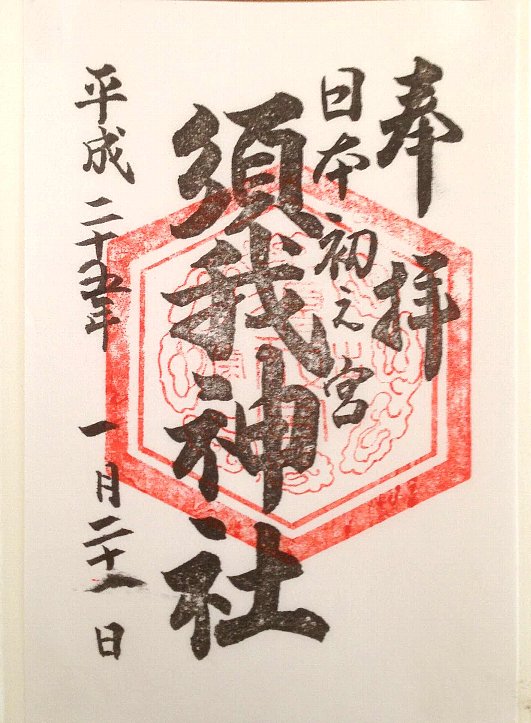 奉拝
日本初之宮
須我神社
平成二十五年 一月二十八日